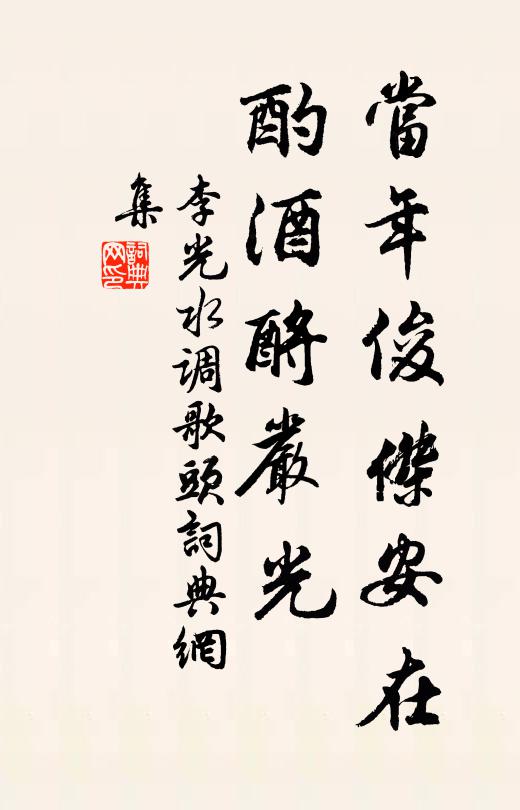 當年俊傑安在
酌酒酹嚴光
李光水调歌頭詞典網
集
詞典
网印